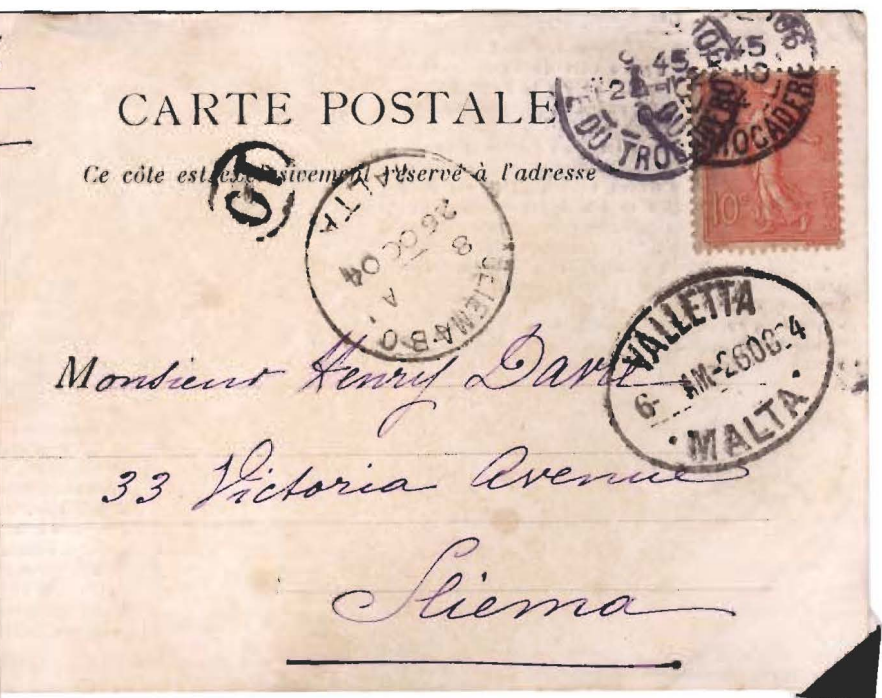 CARTE POSTALE
Ce côte est exclusivement réservé à l'adresse
45
45
DU TROCADERO
TROCADERO
10c
SLIEMA B.O.
8 A
26 OC 04
MALTA
VALLETTA
6- AM-26OC04
MALTA
Monsieur Henry Davis
33 Victoria Avenue
Sliema